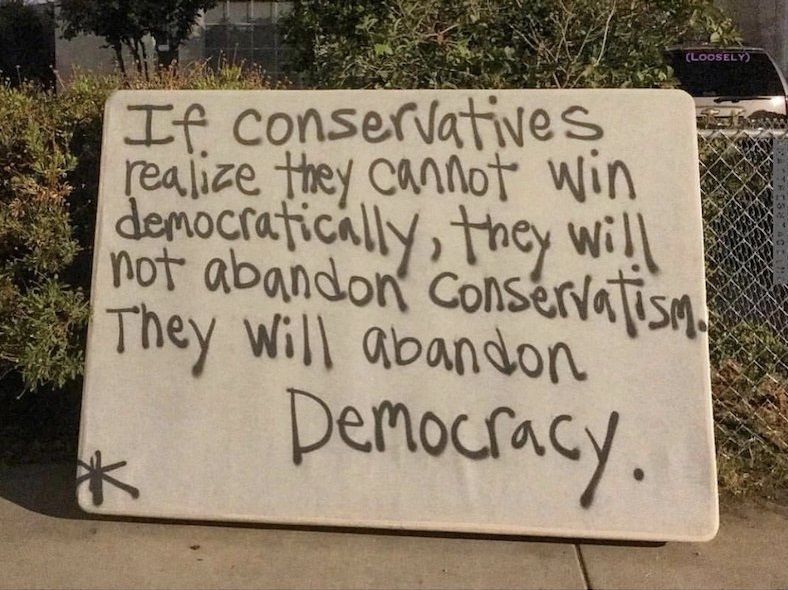 (LOOSELY)
If conservatives
realize they cannot win
democratically, they will
not abandon conservatism.
They will abandon
Democracy.